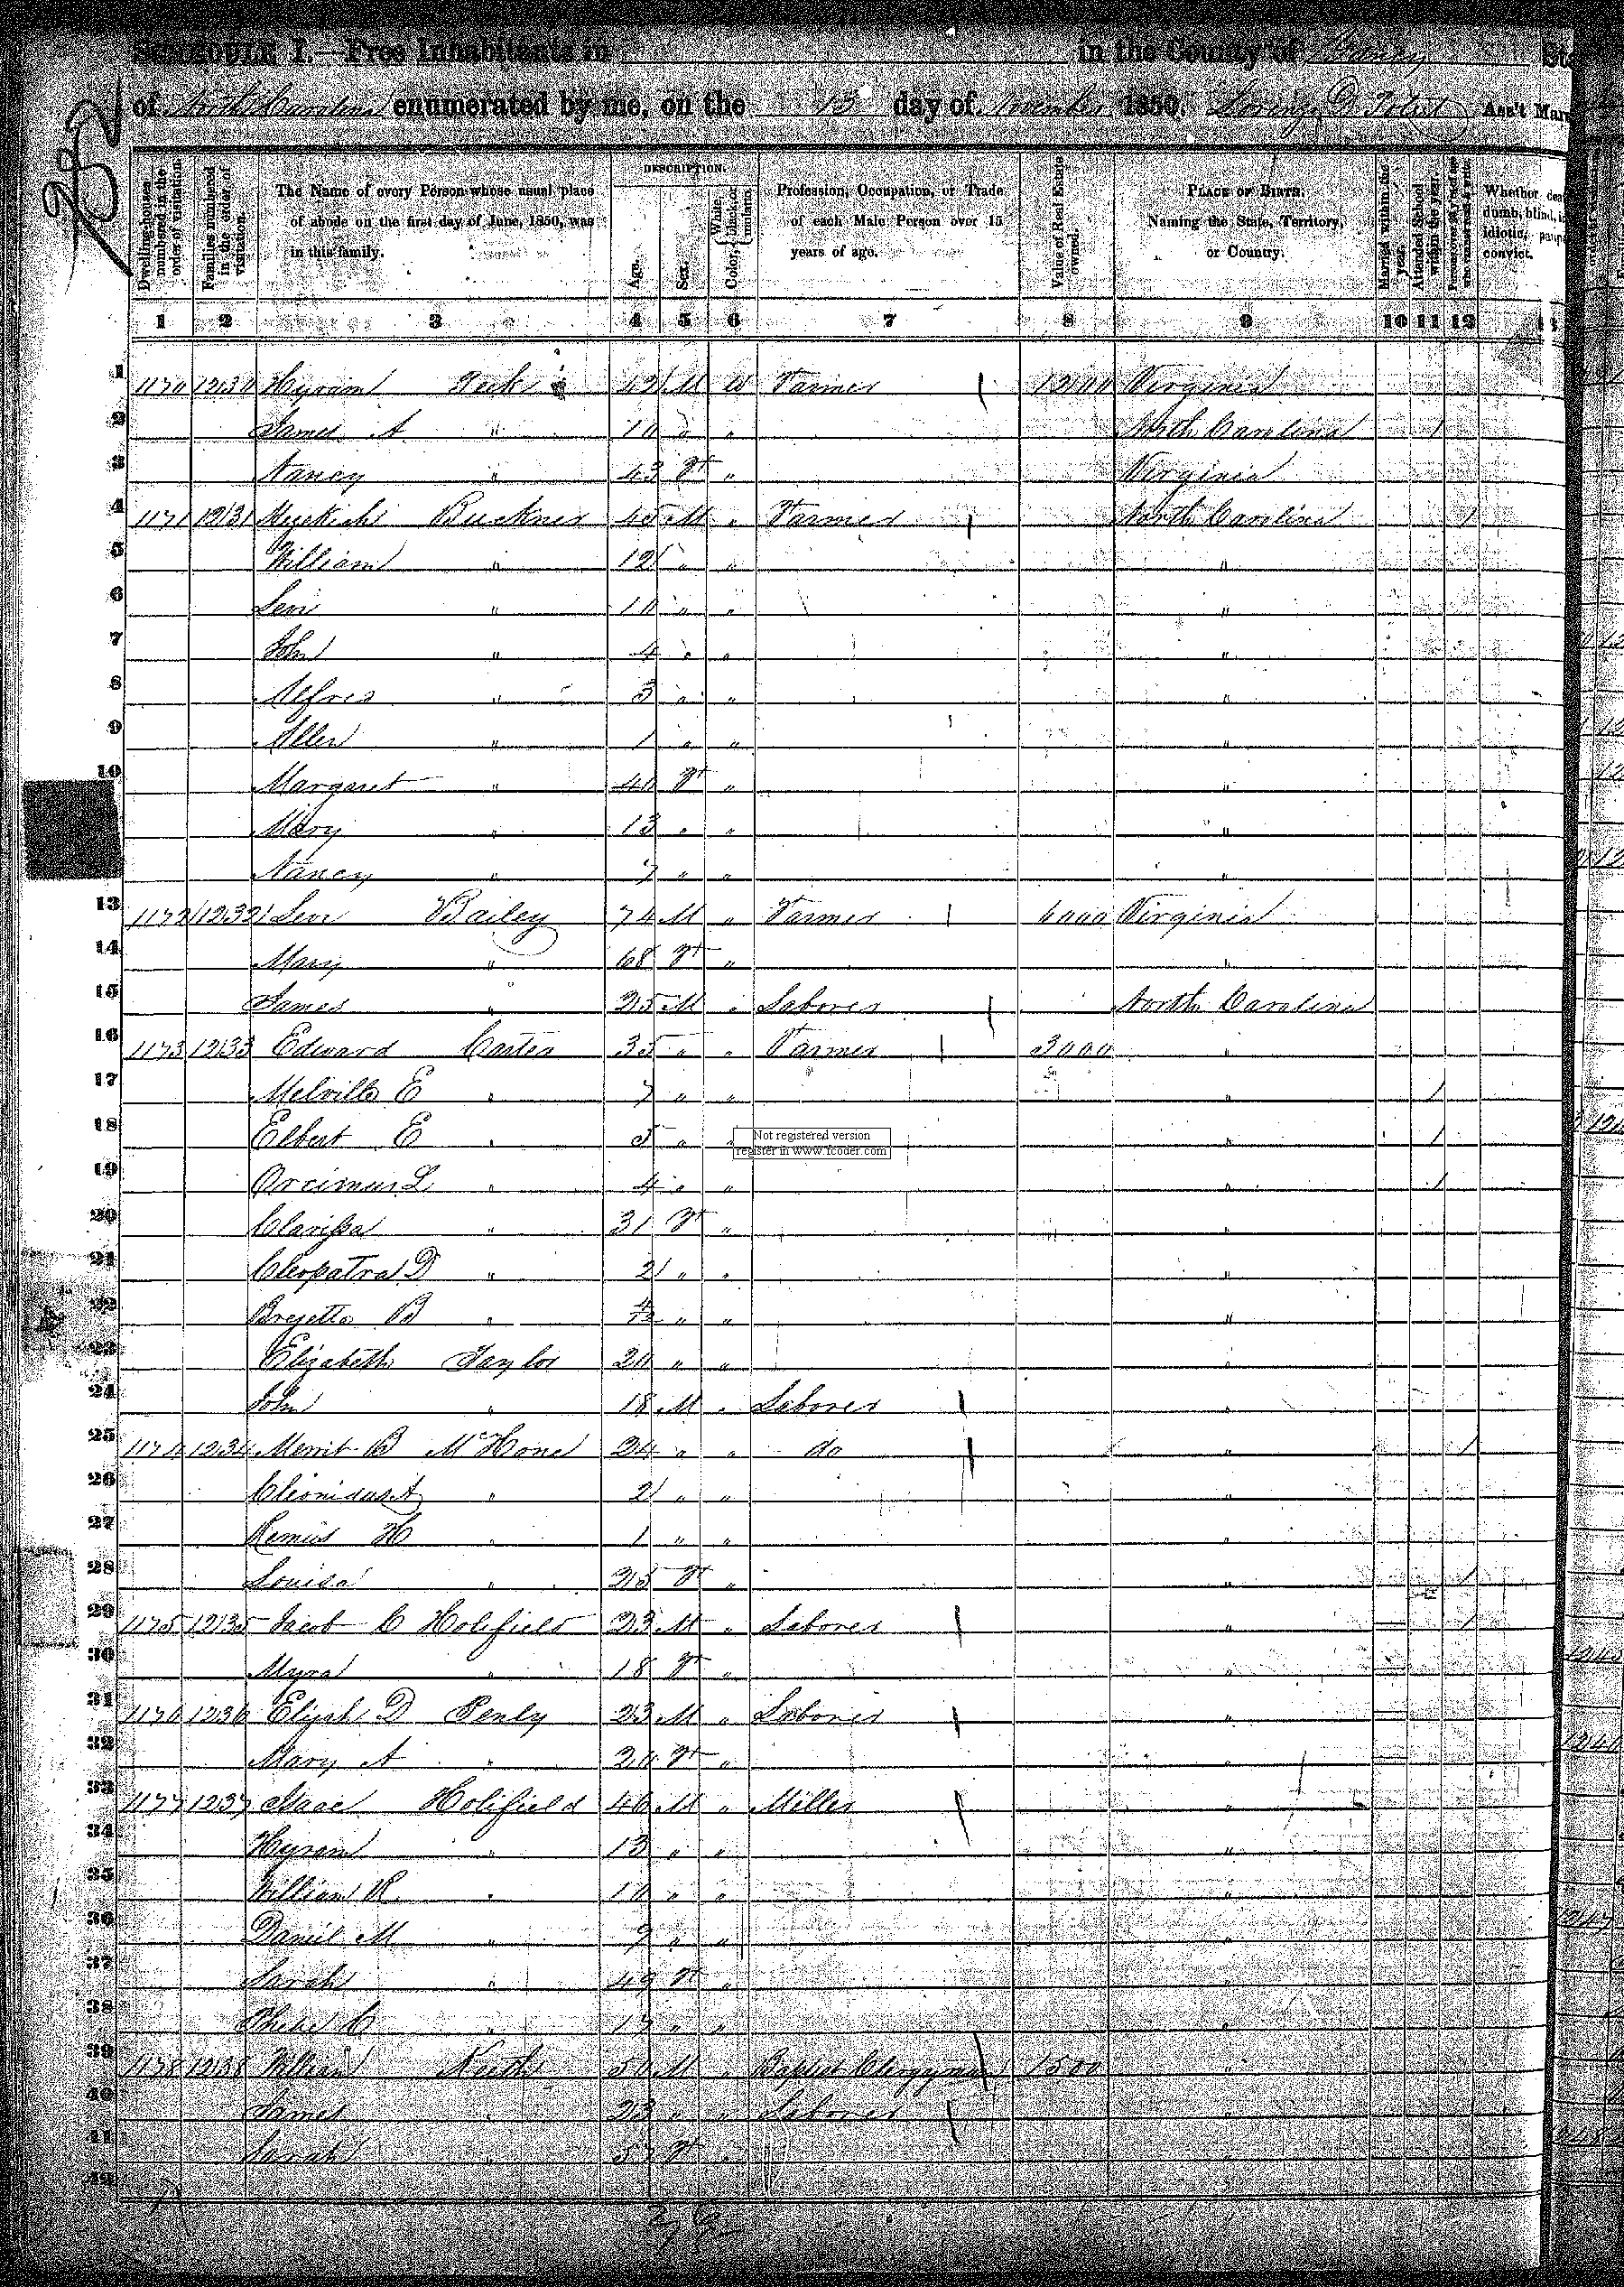 SCHEDULE I.—Free Inhabitants in in the County of Yancy
of North Carolina enumerated by me, on the 13 day of November 1850. Ass't Mar
DESCRIPTION.
Dwelling-houses numbered in the order of visitation.
Families numbered in the order of visitation.
The Name of every Person whose usual place of abode on the first day of June, 1850, was in this family.
Age.
Sex.
Color, White, black, or mulatto.
Profession, Occupation, or Trade of each Male Person over 15 years of age.
Value of Real Estate owned.
PLACE OF BIRTH. Naming the State, Territory, or Country.
Married within the year.
Attended School within the year.
Whether dea dumb, blind, idiotic, paupe convict.
1 2 3 4 5 6 7 8 9 10 11 12
1 1170 1230 Hyram Peek 42 M W Farmer 1200 Virginia
2 James A " 10 " " North Carolina /
3 Nancy " 43 F " Virginia
4 1171 1231 Buckner 45 M " Farmer North Carolina /
5 William " 12 " " "
6 Levi " 10 " " "
7 John " 4 " " "
8 Alfred " 3 " " "
9 Allen " 1 " " "
10 Margaret " 40 F " "
Mary " 13 " " "
Nancy " 7 " " "
13 1172 1232 Levi Bailey 74 M " Farmer 6000 Virginia
14 Mary " 68 F " "
15 James " 25 M " Laborer North Carolina
16 1173 1233 Edward Carter 35 " " Farmer 3000 "
17 Melville E " 7 " " " /
18 Elbert E " 5 " " " /
Not registered version
register in www.fcoder.com
19 Orcimus L " 4 " " " /
20 Clarissa " 31 F " "
21 Cleopatra D " 2 " " "
22 B " 4/12 " " "
23 Elizabeth Taylor 20 " " "
24 John " 18 M " Laborer "
25 1174 1234 Merrit B McHone 24 " " do " /
26 Cleonidas A " 2 " " "
27 Remus H " 1 " " "
28 Louisa " 25 F " " /
29 1175 1235 Jacob C Holifield 23 M " Laborer " /
30 Myra " 18 F " "
31 1176 1236 Elijah D Penly 23 M " Laborer "
32 Mary A " 20 F " "
33 1177 1237 Isaac Holifield 46 M " Miller "
34 Hyram " 13 " " "
35 William R " 10 " " "
36 Daniel M " 9 " " "
37 Sarah " 49 F " "
38 Phebe C " 17 " " "
39 1178 1238 William Keith 50 M " Baptist Clergyman 1500 "
40 James " 23 " " Laborer "
41 Sarah " 57 F " "
42